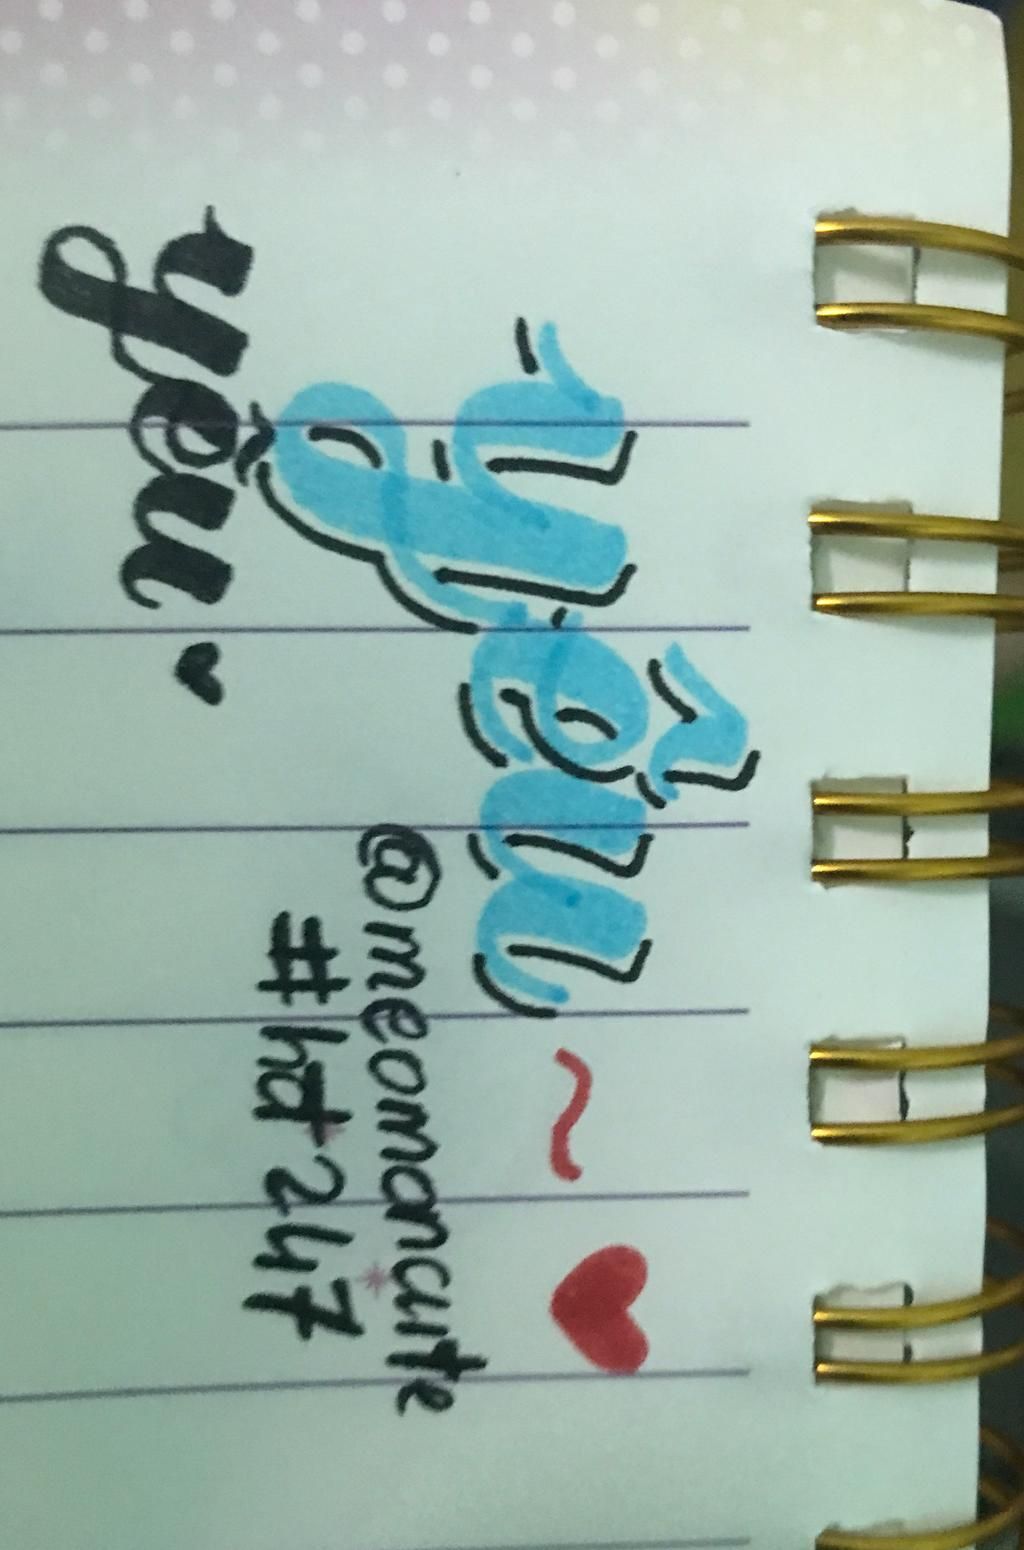 yêu ~ ♥
@meomancute
#hd247
yêu ♥